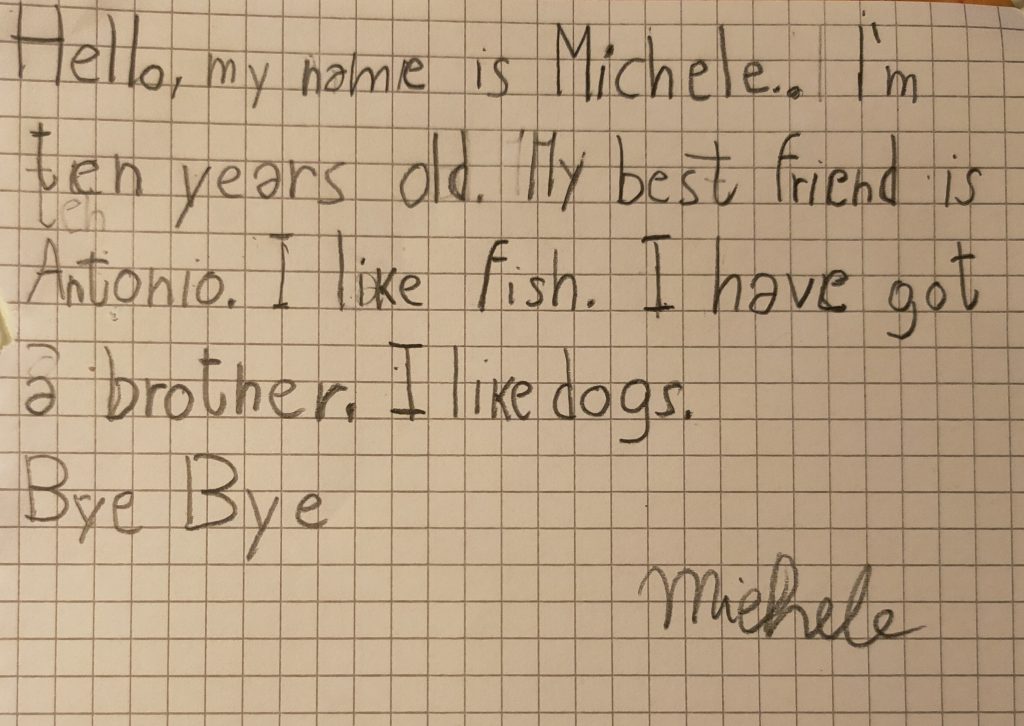 Hello, my name is Michele.. I'm
ten years old. My best friend is
Antonio. I like fish. I have got
a brother. I like dogs.
Bye Bye
Michele